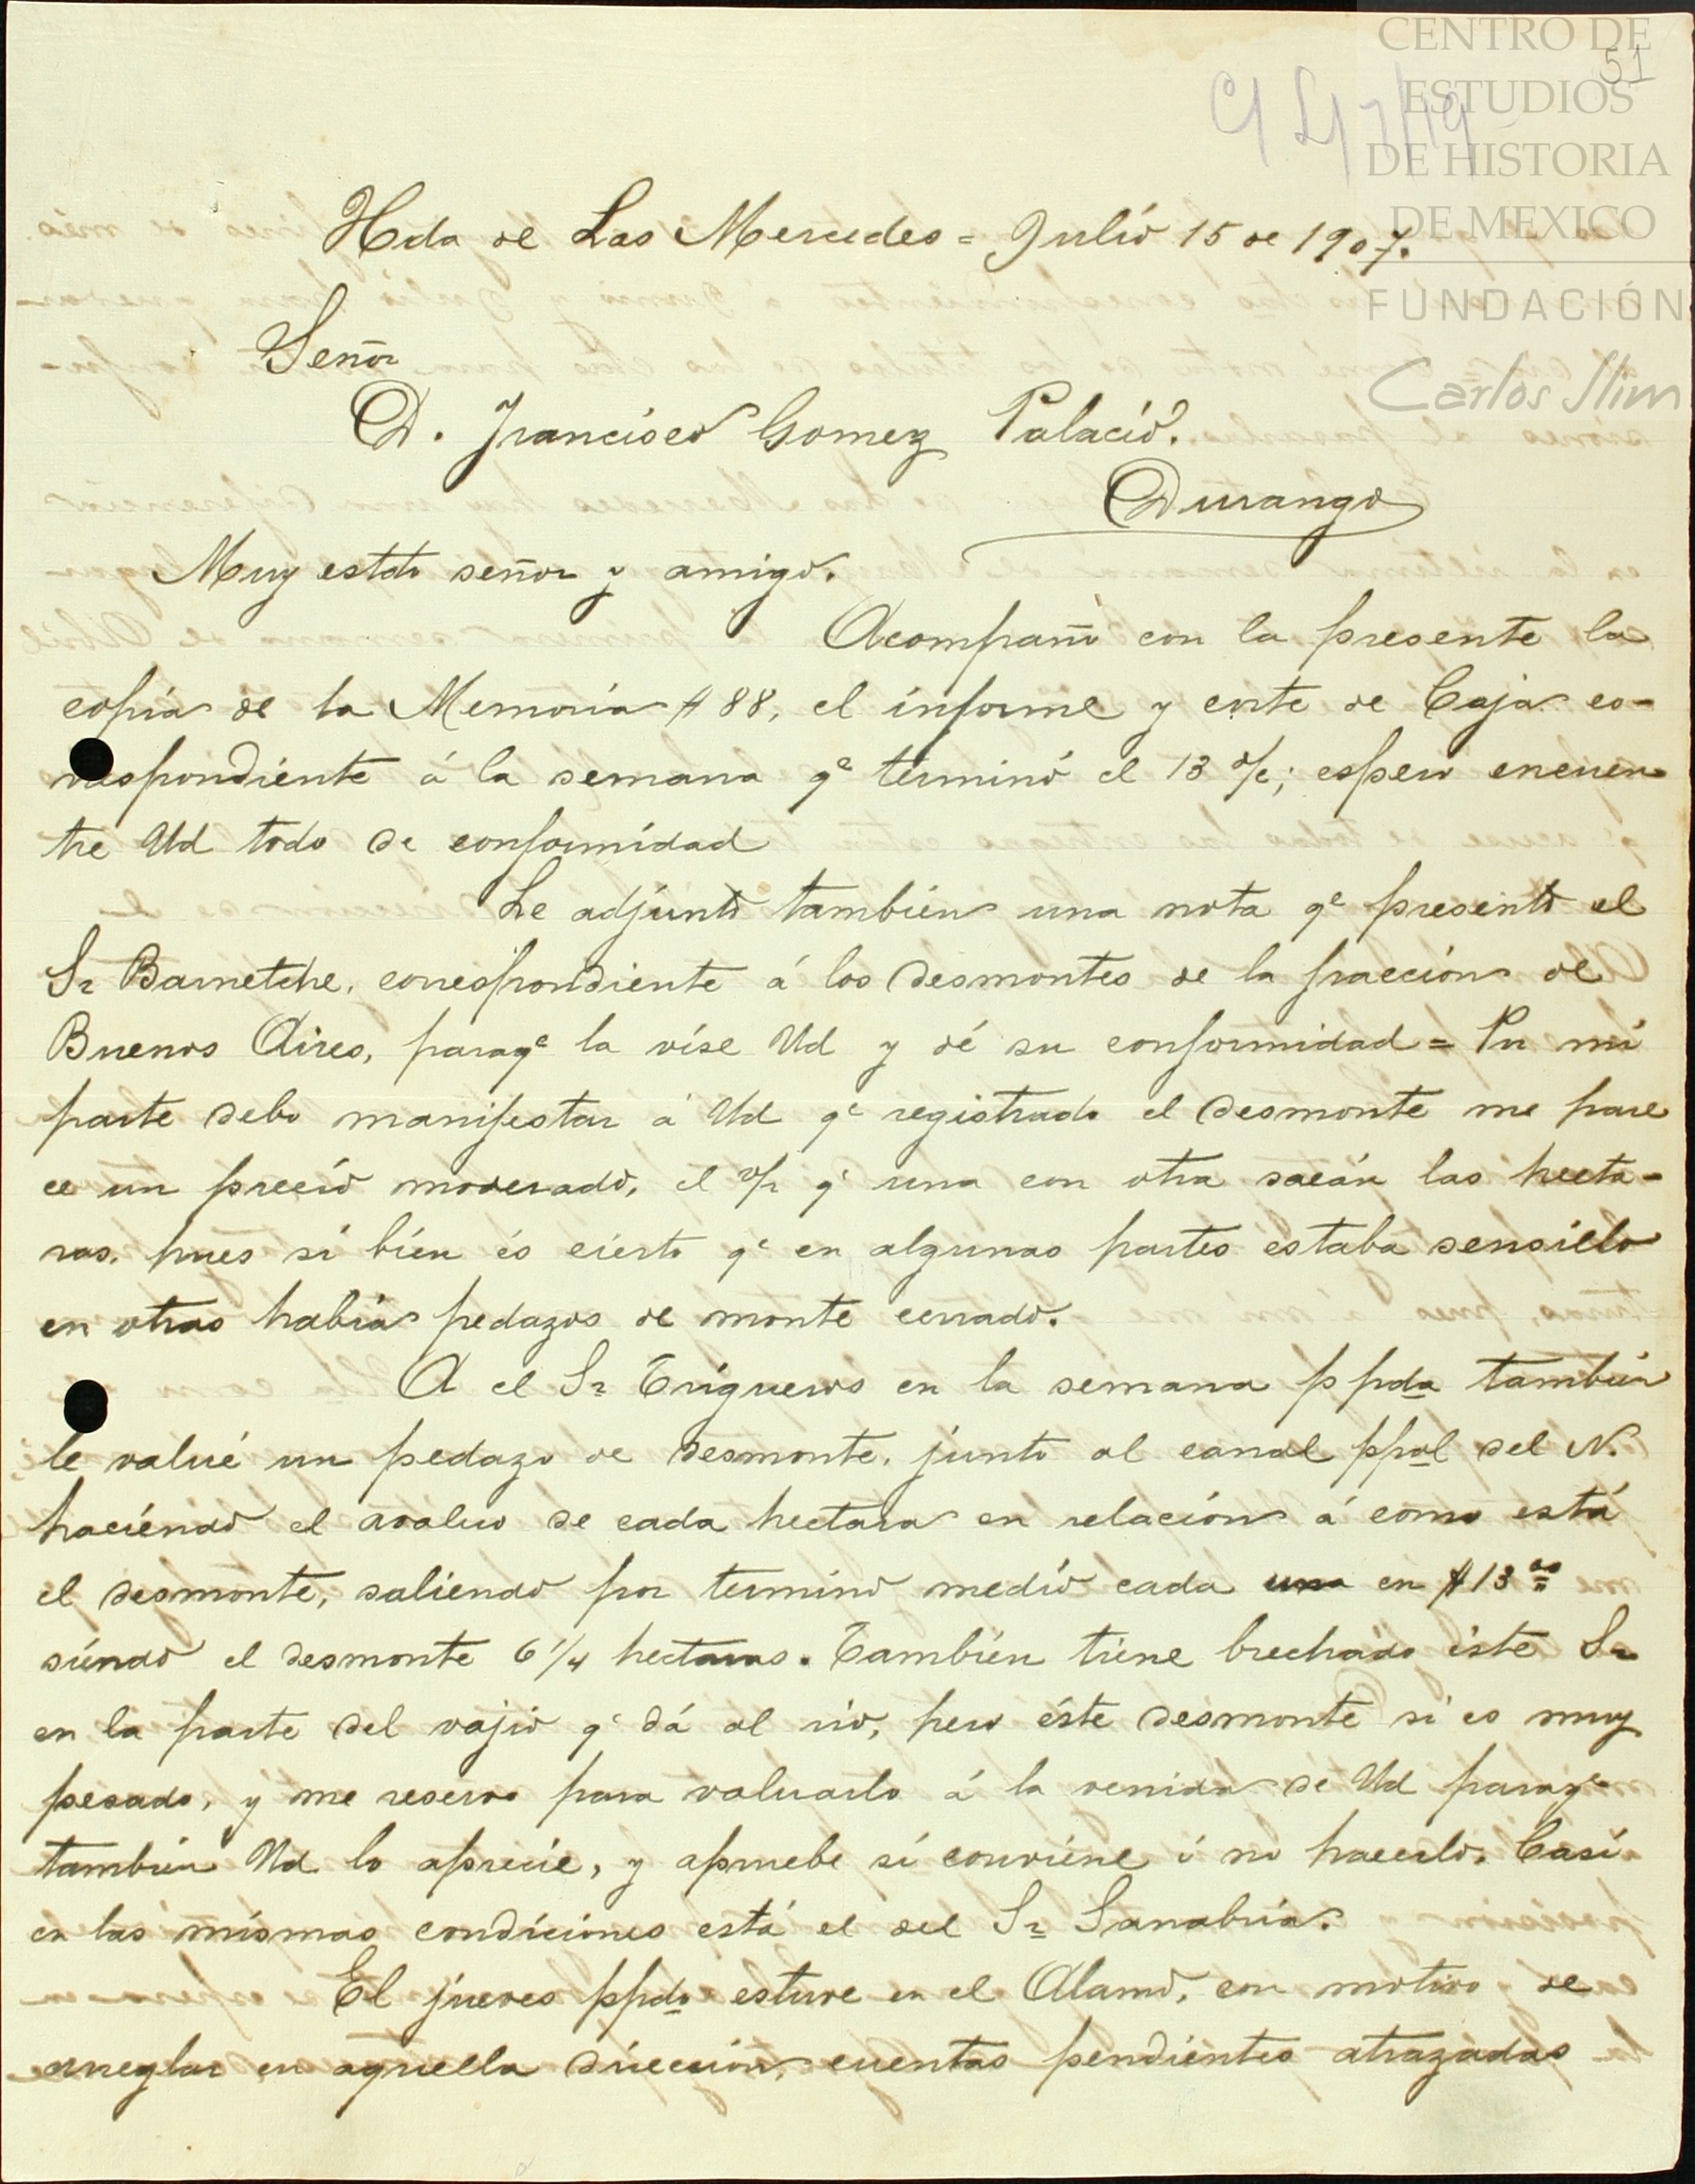 CENTRO DE
51
ESTUDIOS
DE HISTORIA
DE MEXICO
FUNDACIÓN
Carlos Slim
Hda de Las Mercedes = Julio 15 de 1907.
Señor
D. Francisco Gomez Palacio.
Durango
Muy estdo señor y amigo.
Acompaño con la presente la
copia de la Memoria # 88, el informe y corte de Caja co-
rrespondiente á la semana qe terminó el 13 d/c; espero encuen-
tre Ud todo de conformidad
Le adjunto también una nota qe presentó el
Sr Barnetche, correspondiente á los desmontes de la fracción de
Buenos Aires, paraqe la vise Ud y dé su conformidad = Por mi
parte debo manifestar á Ud qe registrado el desmonte me pare
ce un precio moderado, el v/r qe una con otra sacán las hecta-
ras, pues si bien és cierto qe en algunas partes estaba sensillo
en otras había pedazos de monte cerrado.
A el Sr Trigueros en la semana p ppda también
le valué un pedazo de desmonte, junto al canal ppal del N.
haciendo el avaluo de cada hectara en relación á como está
el desmonte, saliendo por termino medio cada una en $13 00
siendo el desmonte 6 1/4 hectaras. También tiene brechado éste Sr
en la parte del vajio qe dá al rio, pero éste desmonte si es muy
pesado, y me reservo para valuarlo á la venida de Ud paraqe
también Ud lo aprecie, y apruebe si conviene ó no hacerlo. Casi
en las mismas condiciones está el del Sr Sanabria.
El jueves ppdo estuve en el Alamo, con motivo de
arreglar en aquella dirección, cuentas pendientes atrazadas